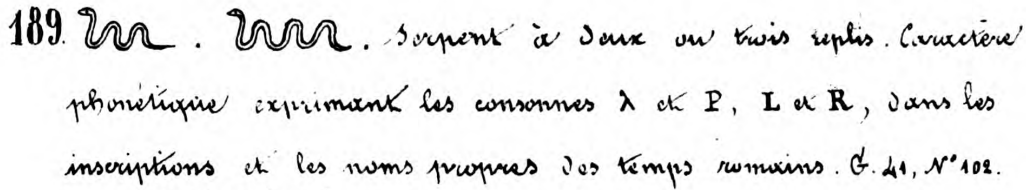 189. . Serpent à deux ou trois replis. Caractère
phonétique exprimant les consonnes λ et P, L et R, dans les
inscriptions et les noms propres des temps romains. G. 41, N° 102.